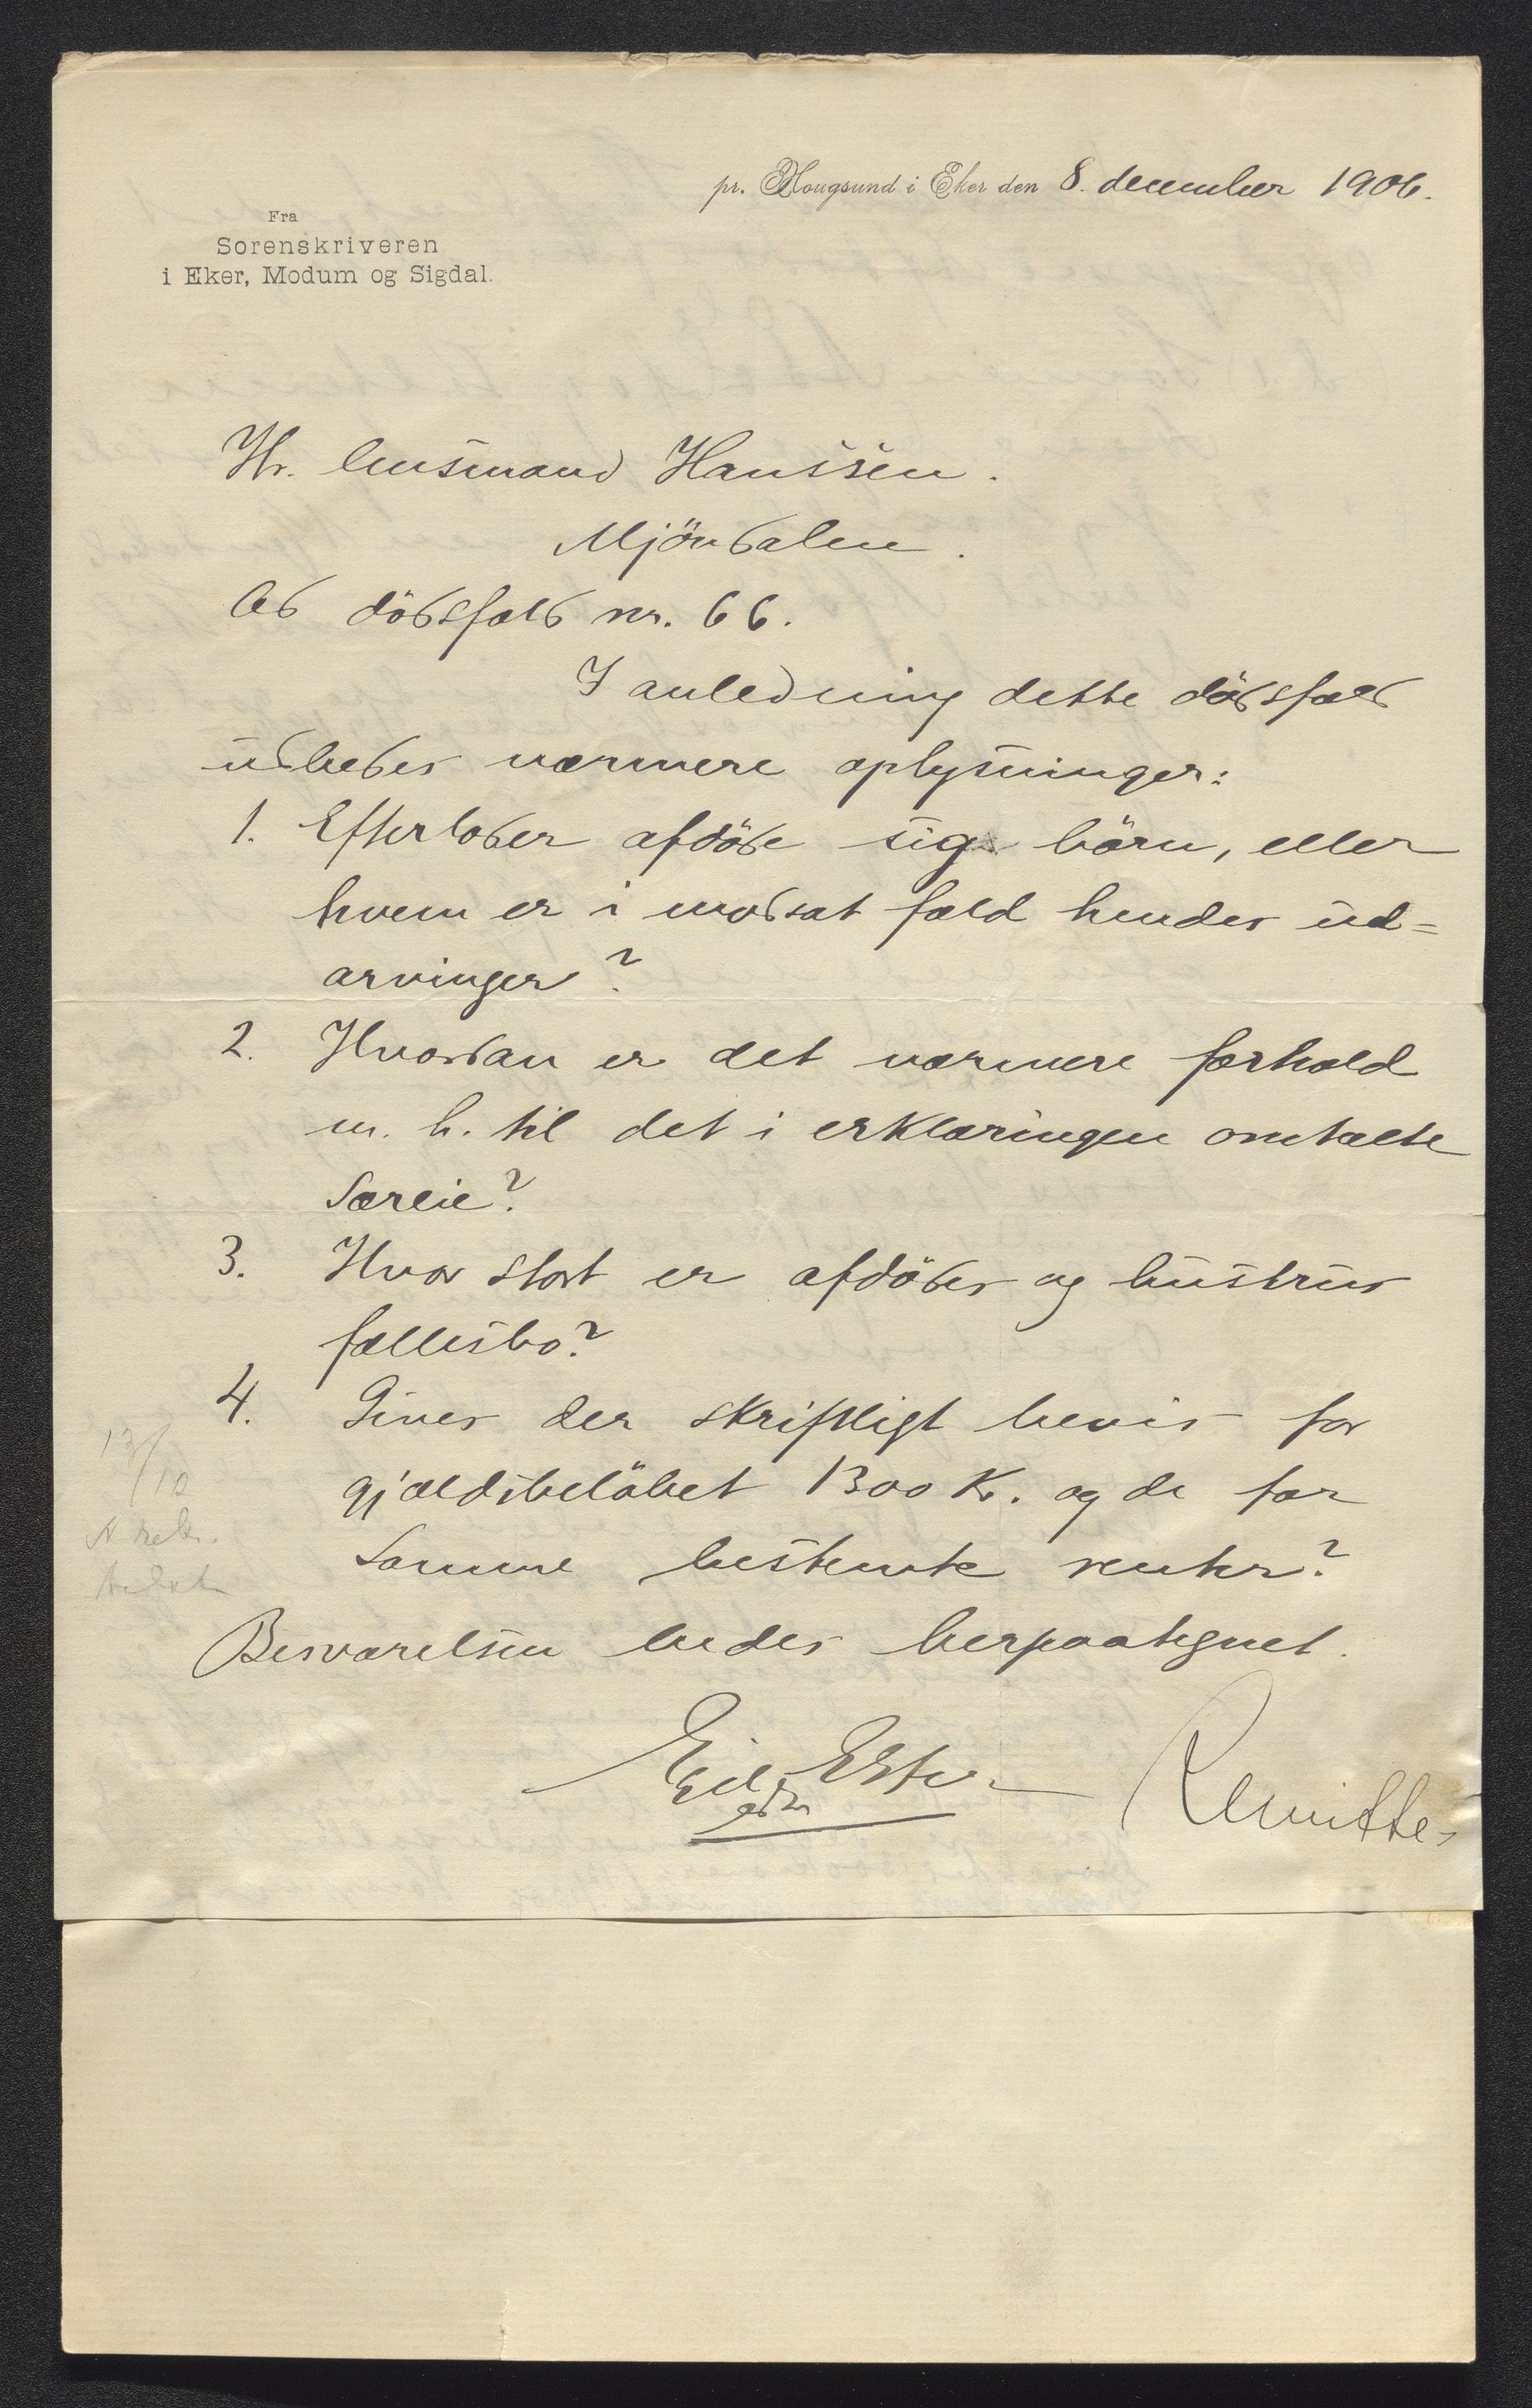 pr. Hougsund i Eker den 8. december 1906.
Fra
Sorenskriveren
i Eker, Modum og Sigdal.
Hr. lensmand Hanssen.
Mjöndalen.
Ad dödsfald nr. 66.
I anledning dette dödsfald
udbedes nærmere oplysninger:
1. Efterlader afdöde sig börn, eller
hvem er i modsat fald hendes ud=
arvinger?
2. Hvordan er det nærmere forhold
m. h. til det i erklæringen omtalte
særeie?
3. Hvor stort er afdödes og hustrus
fællesbo?
4. Gives der skriftligt bevis for
gjældsbelöbet 1300 Kr. og de for
samme bestemte renter?
13/10
Besvarelsen bedes herpaategnet.
Remitte-